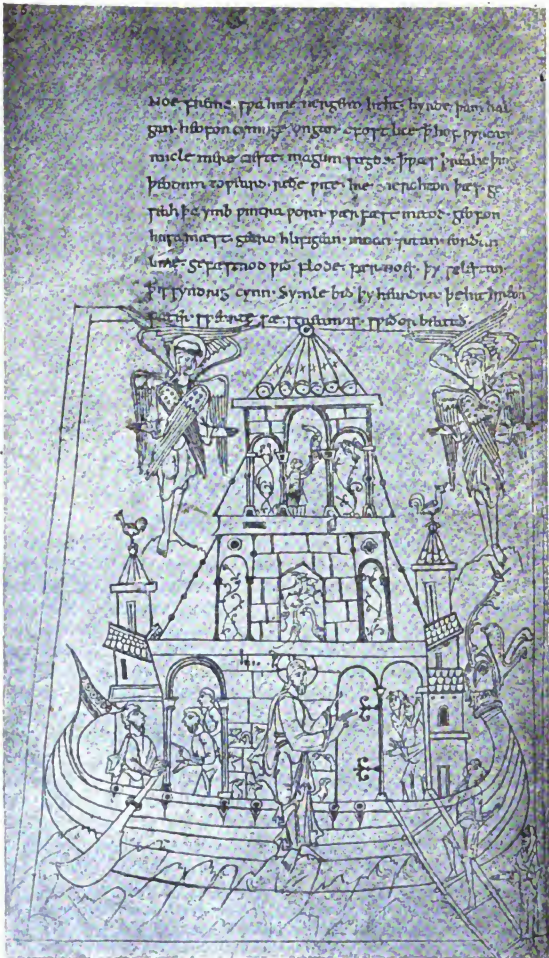 Noe fremede. sƿa hine nergend heht. hyrde þam hal
gan heofon cyninge ongan ofostlice ꝥ hof ƿyrcan
micle mere cieste. magum sægde. ꝥ ƿæs þrealic þing
þeodum toƿeard. reðe ƿite. hie ne rohton þæs. ge
seah þa ymb ƿintra ƿorn ƿær fæst metod. geofon
husa mæst gearo hlifigean. innan 7 utan eorðan
lime. gefæstnod ƿið flode. fær noes. þy selestan.
ꝥ is syndrig cynn. Symle bið þy heardra þe hit hreoh
ƿæter. sƿearte sæ streamas. sƿiðor beatað.